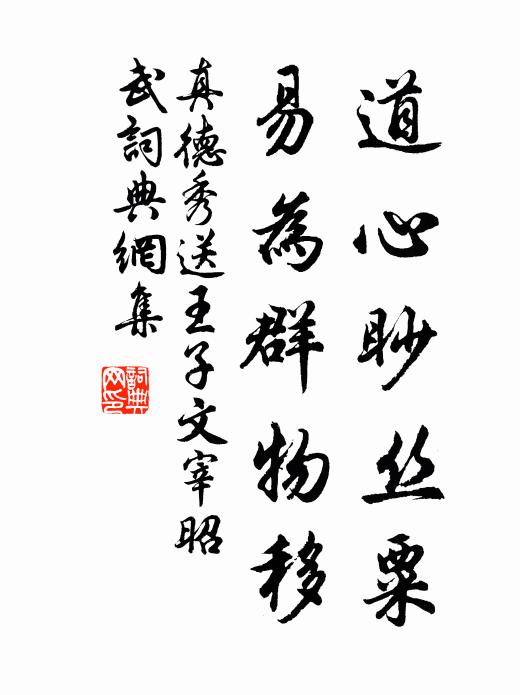 道心眇丝粟
易為群物移
真德秀送王子文宰昭
武詞典網集
詞典
网印